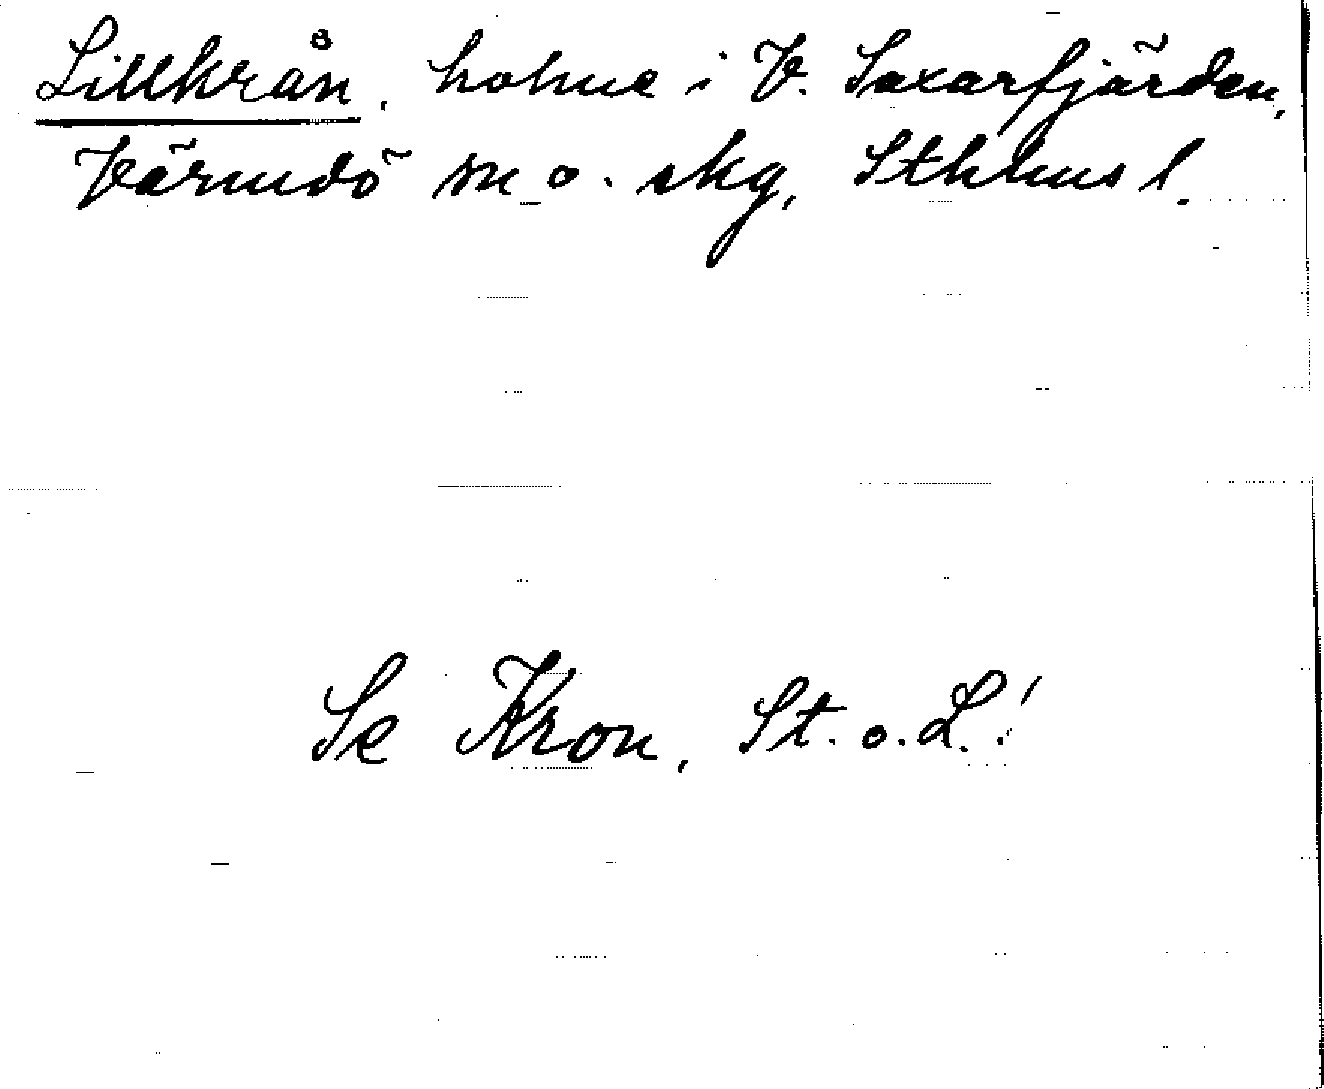 Lillkrån, holme i V. Saxarfjärden,
Värmdö sn o. skg, Sthlms l.
Se Kron, St. o. L.!